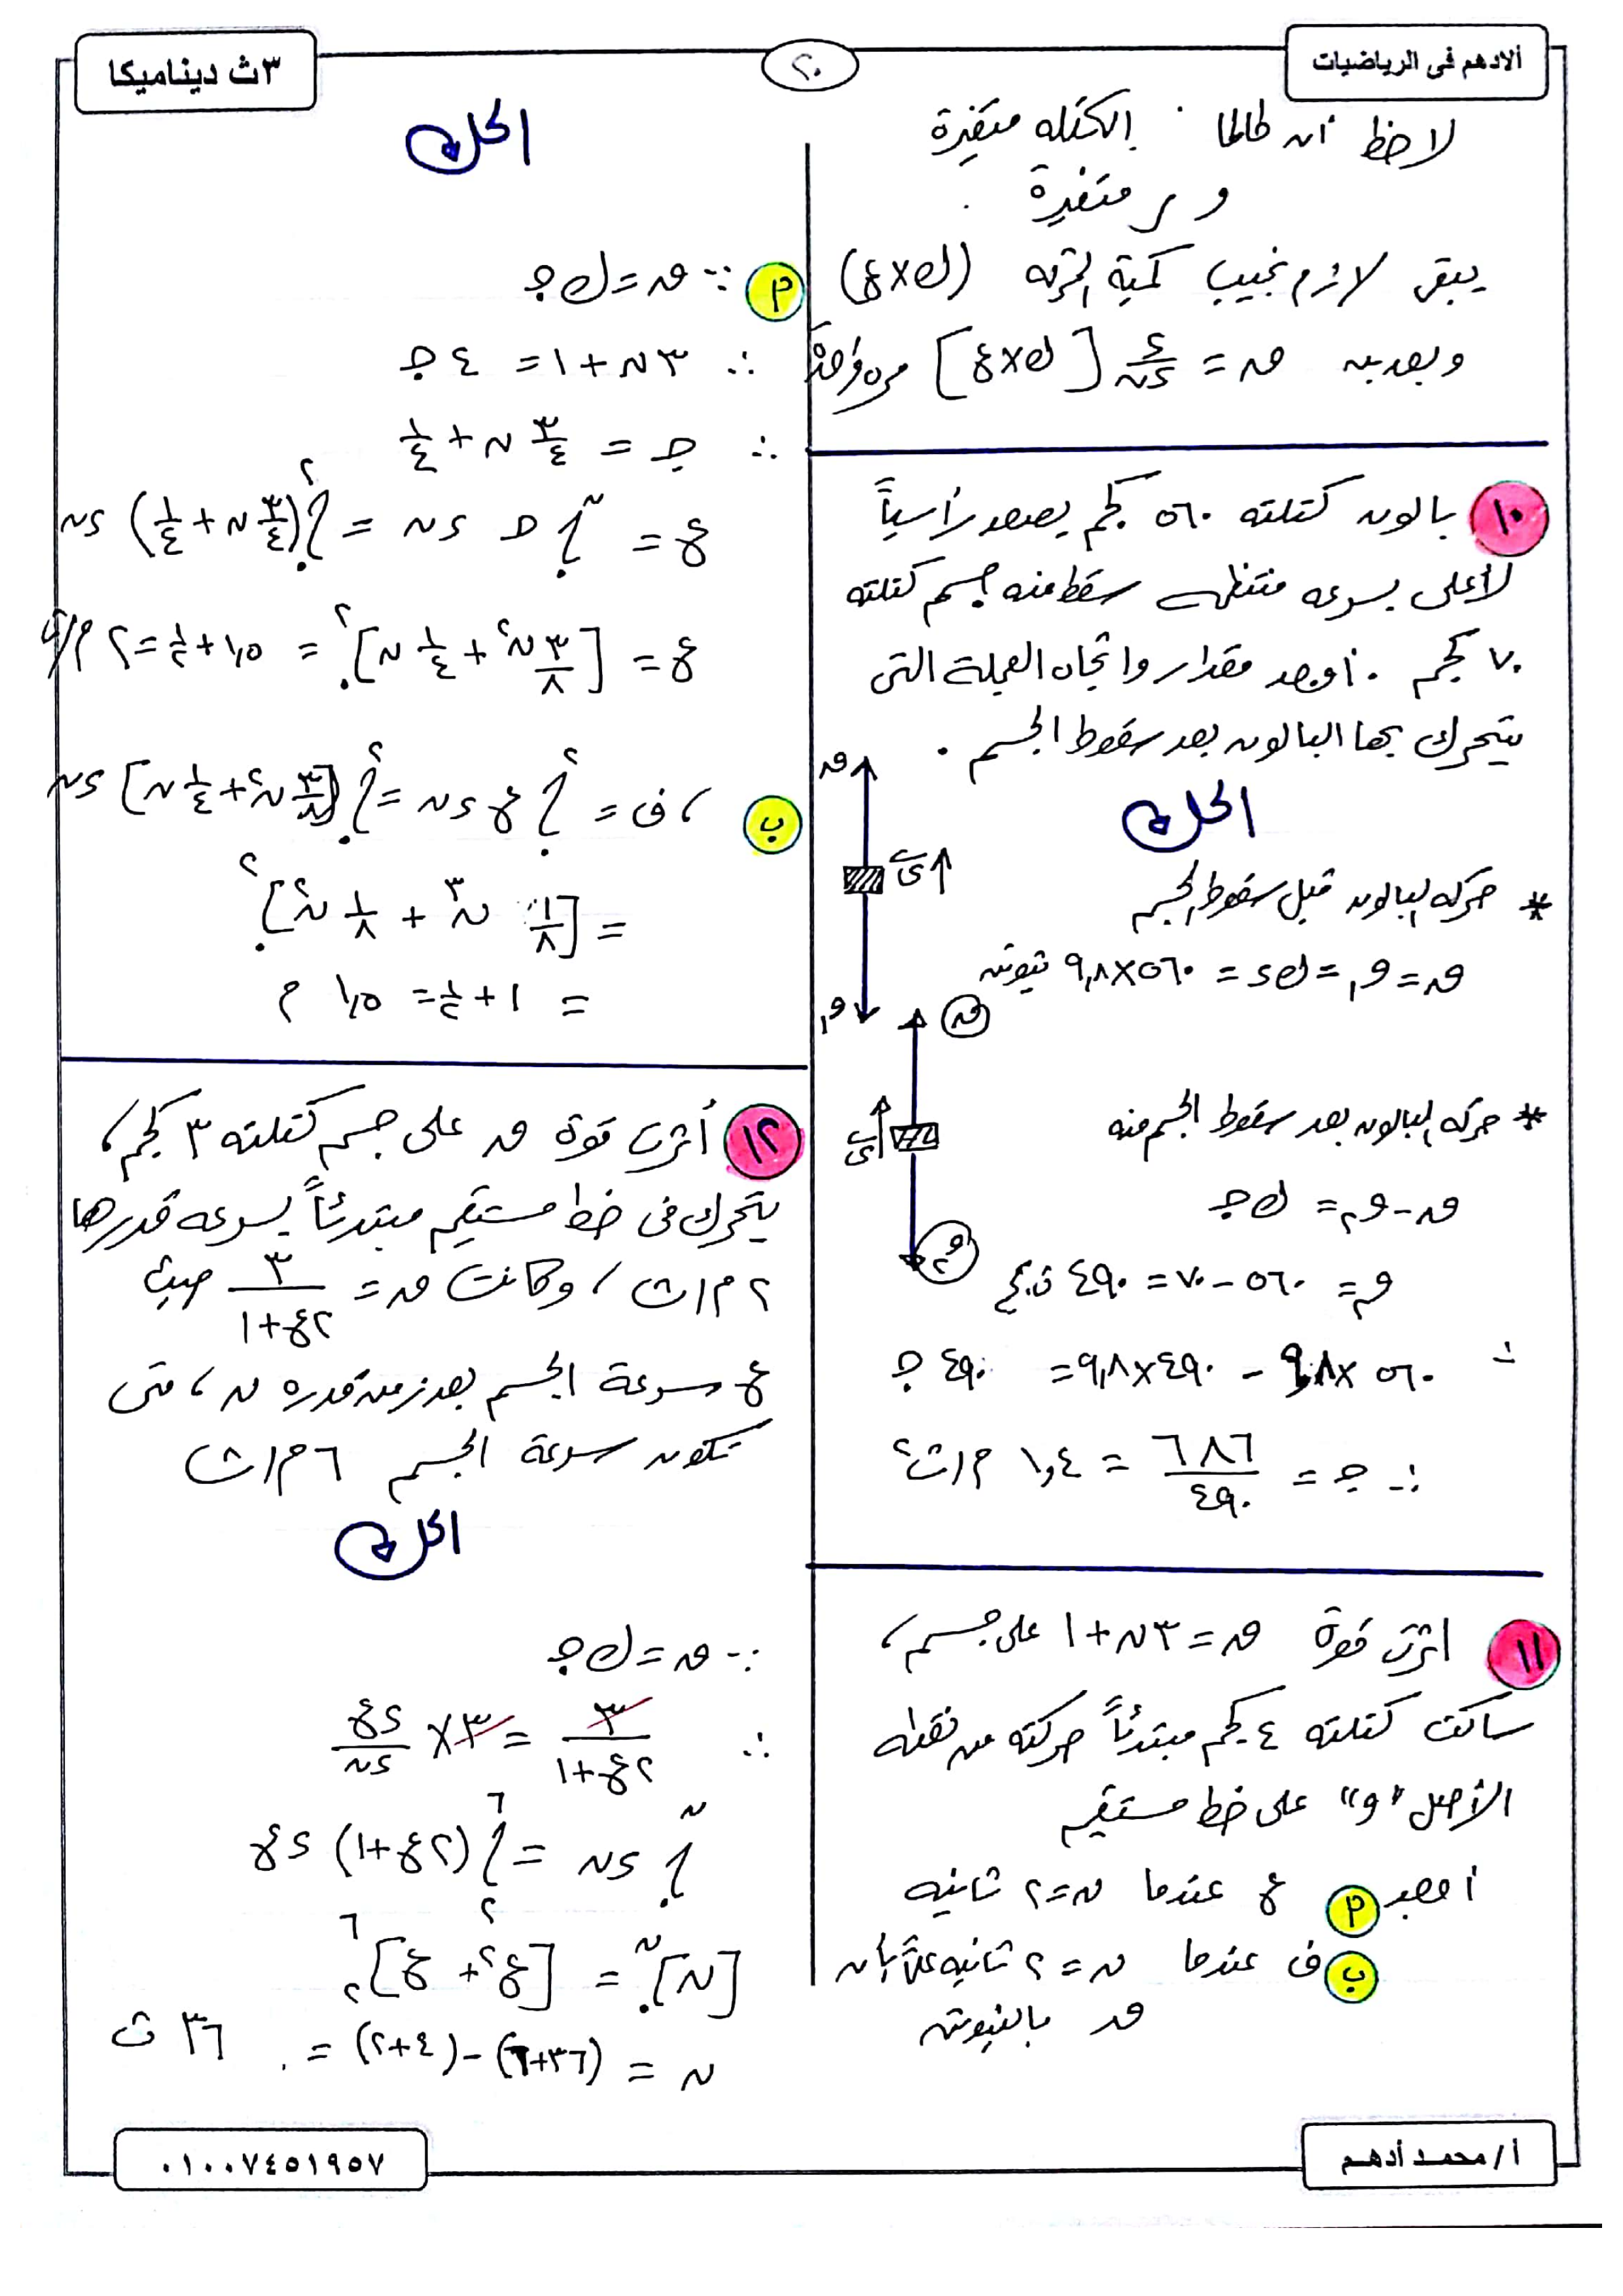 ألادهم فى الرياضيات
٢٠
٣ث ديناميكا
لاحظ أن طالما الكتله متغيرة
و ر متغيرة
يبقى لازم نجيب كمية الحركه (ك×ع)
وبعدين ق = د/دن [ك×ع] مره واحدة
١٠ بالون كتلته ٥٦٠ كجم يصعد رأسياً
لأعلى بسرعه منتظمه سقط منه جسم كتلته
٧٠ كجم . أوجد مقدار واتجاه العجلة التى
يتحرك بها البالون بعد سقوط الجسم .
الحل
* حركه البالون قبل سقوط الجسم
ق = و١ = ك د = ٥٦٠×٩,٨ نيوتن
ق
ى
و١
* حركه البالون بعد سقوط الجسم منه
ق
ى
و٢
ق - و٢ = ك جـ
و٢ = ٥٦٠ - ٧٠ = ٤٩٠ ث.كجم
∴ ٥٦٠×٩,٨ - ٤٩٠×٩,٨ = ٤٩٠ جـ
∴ جـ = ٦٨٦/٤٩٠ = ١,٤ م/ث٢
١١ اثرت قوة ق = ٣ن + ١ على جسم ،
ساكن كتلته ٤ كجم مبتدئاً حركته من نقطه
الأصل "و" على خط مستقيم
أوجد أ ع عندما ن = ٢ ثانيه
ب ف عندما ن = ٢ ثانيه علماً بأن
ق بالنيوتن
الحل
أ ∵ ق = ك جـ
∴ ٣ن + ١ = ٤ جـ
∴ جـ = ٣/٤ ن + ١/٤
ع = ∫٠^ن جـ دن = ∫٠^٢ (٣/٤ ن + ١/٤) دن
ع = [٣/٨ ن٢ + ١/٤ ن]٠^٢ = ١,٥ + ١/٢ = ٢ م/ث
ب ، ف = ∫٠^٢ ع دن = ∫٠^٢ [٣/٨ ن٢ + ١/٤ ن] دن
= [١/٨ ن٣ + ١/٨ ن٢]٠^٢
= ١ + ١/٢ = ١,٥ م
١٢ أثرت قوة ق على جسم كتلته ٣ كجم ،
يتحرك فى خط مستقيم مبتدئاً بسرعه قدرها
٢ م/ث ، وكانت ق = ٣/(٢ع+١) حيث
ع سرعة الجسم بعد زمن قدره ن ، متى
تكون سرعة الجسم ٦ م/ث
الحل
∵ ق = ك جـ
∴ ٣/(٢ع+١) = ٣ × دع/دن
∫٠^ن دن = ∫٢^٦ (٢ع+١) دع
[ن]٠^ن = [ع٢ + ع]٢^٦
ن = (٣٦+٦) - (٤+٢) = ٣٦ ث
أ/ محمد أدهم
٠١٠٠٧٤٥١٩٥٧